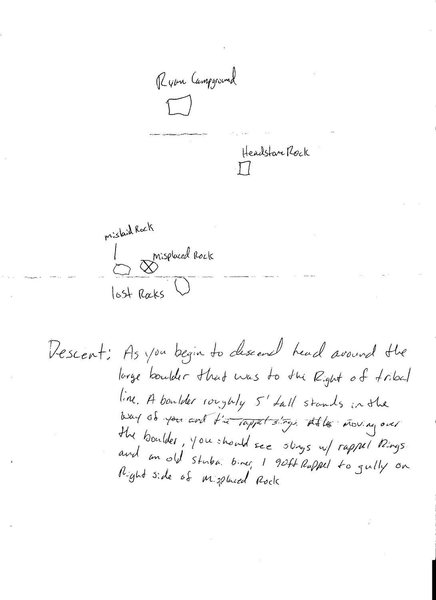 Ryan Campground
Headstone Rock
mislaid Rock
Misplaced Rock
lost Rocks
Descent: As you begin to descend head around the
large boulder that was to the Right of tribal
line. A boulder roughly 5' tall stands in the
way of you and the rappel slings. After moving over
the boulder, you should see slings w/ rappel Rings
and an old stubai biner, 1 90ft Rappel to gully on
Right side of Misplaced Rock